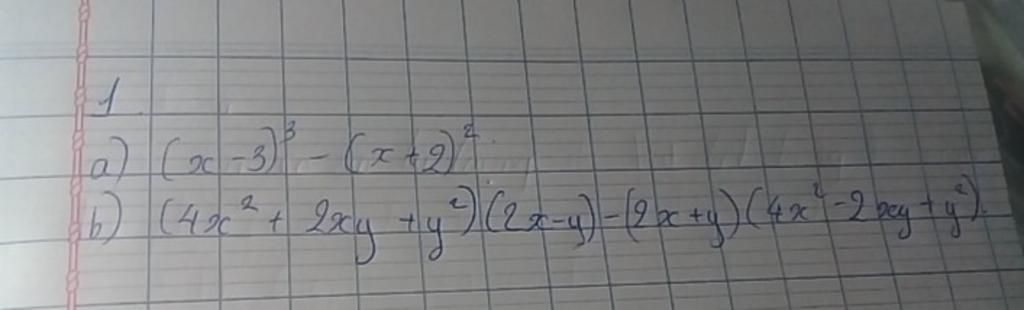 1.
a) (x - 3)³ - (x + 2)²
b) (4x² + 2xy + y²)(2x - y) - (2x + y)(4x² - 2xy + y²)